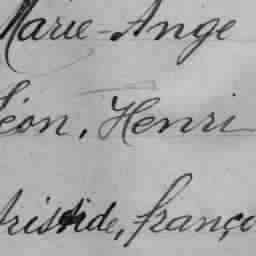 Marie-Ange
Léon, Henri
Aristide, franço